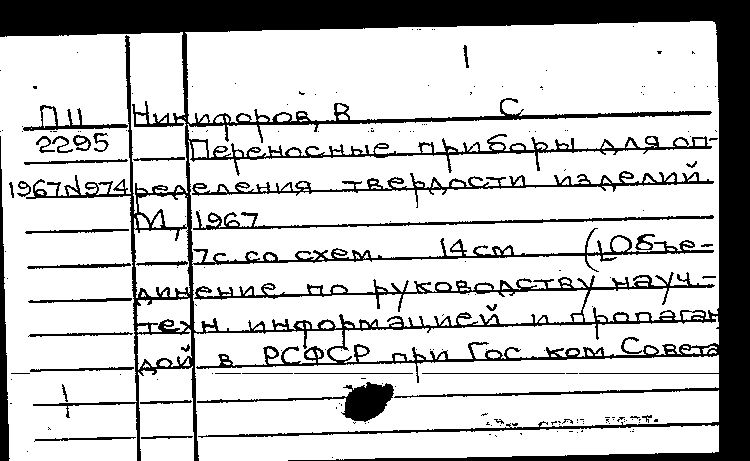 1
П11 Никифоров, В С
2295 Переносные приборы для оп-
1967№974 ределения твердости изделий.
М, 1967
7с. со схем. 14 см. (1,Объе-
динение по руководству науч.-
техн. информацией и пропаган
дой в РСФСР при Гос. ком. Совета